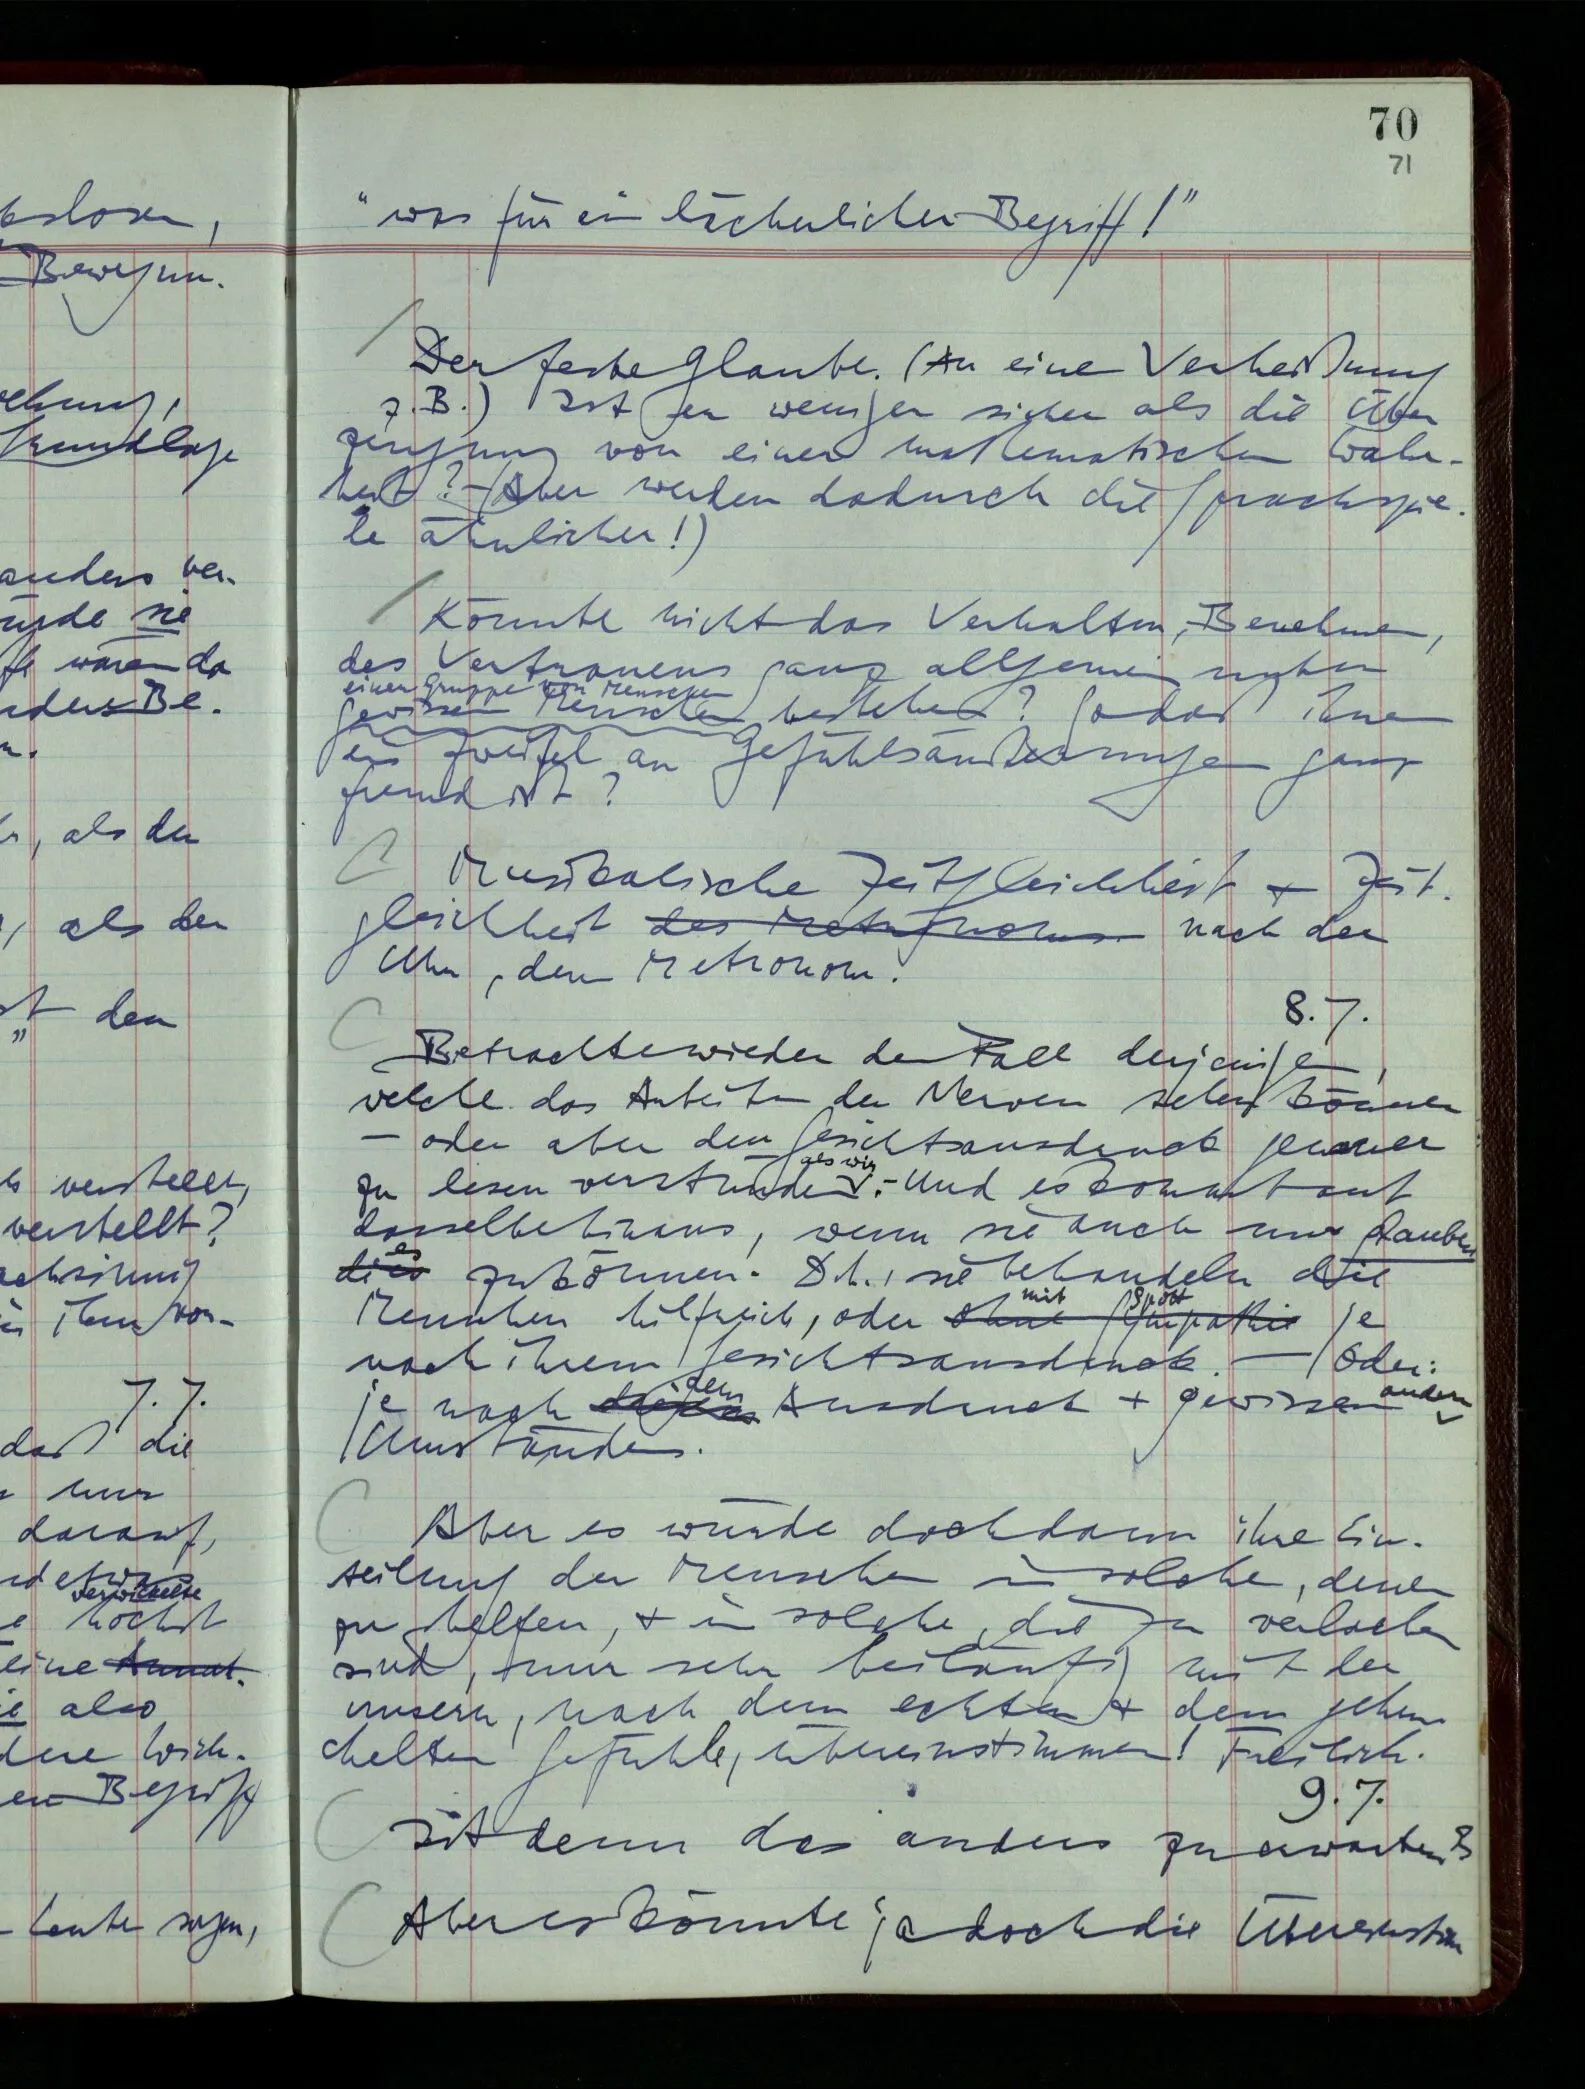 70
71
"was für ein lächerlicher Begriff!"
Der feste Glaube. (An eine Verheißung
z.B.) Ist er weniger sicher als die Über
zeugung von einer mathematischen Wahr-
heit? – (Aber werden dadurch die Sprachspie-
le ähnlicher!)
Könnte nicht das Verhalten, Benehmen,
des Vertrauens ganz allgemein unter
einer Gruppe von Menschen
gewissen Menschen bestehen? Sodaß ihnen
ein Zweifel an Gefühlsäußerungen ganz
fremd ist?
Musikalische Zeitgleichheit + Zeit-
gleichheit des Metronoms nach der
Uhr, dem Metronom.
8.7.
Betrachte wieder den Fall derjenigen,
welche das Arbeiten der Nerven sehen können
– oder aber den Gesichtsausdruck genauer
als wir
zu lesen verstünden. – Und es kommt auf
dasselbe hinaus, wenn sie auch nur glauben
es
dies zu können. D.h., sie behandeln die
mit Spott
Menschen hilfreich, oder ohne Sympathie je
nach ihrem Gesichtsausdruck. — Oder:
dem andern
je nach Ausdruck + gewissen
Umständen.
Aber es würde doch dann ihre Ein-
teilung der Menschen in solche, denen
zu helfen, + in solche, die zu verlachen
sind, nur sehr beiläufig mit der
unsern, nach dem echten + dem geheu-
chelten Gefühle, übereinstimmen! Freilich.
9.7.
Ist denn das anders zu erwarten?
Aber es könnte ja doch die Übereinstim
Bewegun.
Grundlage
anders ver-
würde sie
waren da
Be-
als der
als der
den
verstellt,
verstellt?
ihm vor-
7.7.
daß die
nur
darauf,
etwas
verwickelte
höchst
eine
also
Begriff
Leute sagen,